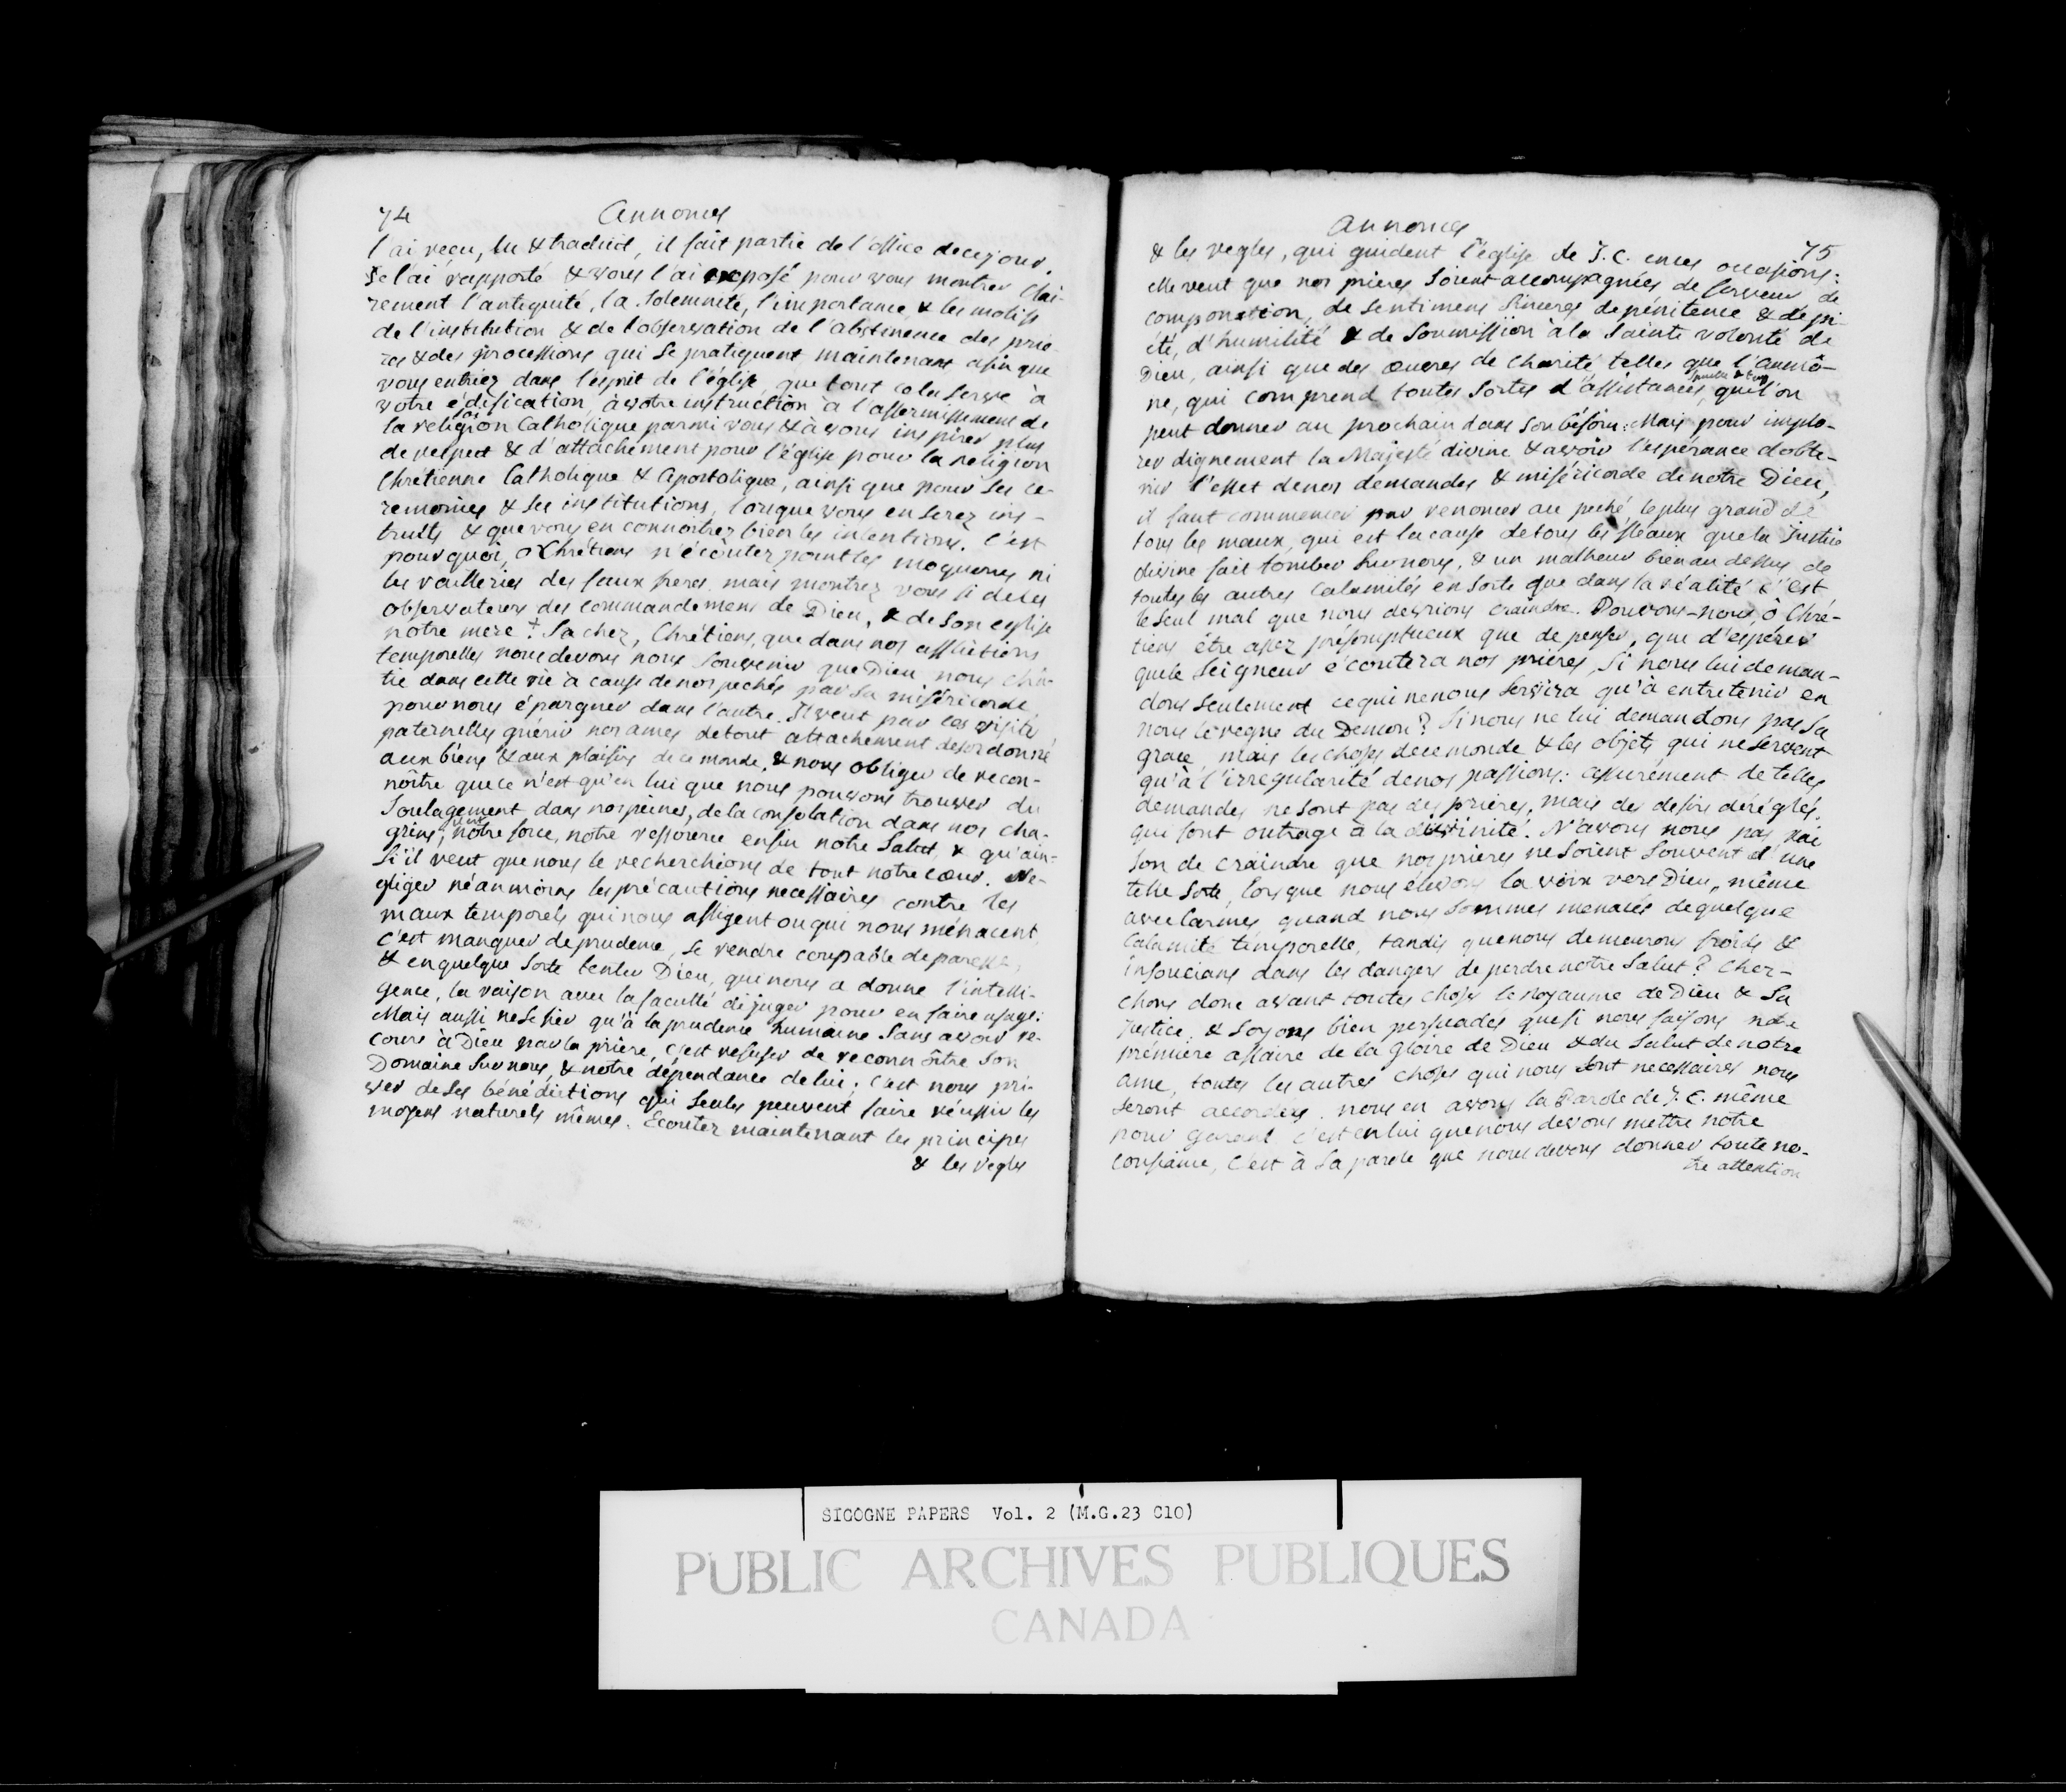 74
Annonces
l'ai reçu, lu & traduit, il fait partie de l'office de ce jour.
Je l'ai rapporté & vous l'ai exposé pour vous montrer clai-
rement l'antiquité, la Solemnité, l'importance & les motifs
de l'institution & de l'observation de l'abstinence des prie-
res & des processions qui se pratiquent maintenant afin que
vous entriez dans l'esprit de l'église, que tout cela serve à
votre édification, à votre instruction à l'affermissement de
la religion Catholique parmi vous & à vous inspirer plus
de respect & d'attachement pour l'église pour la religion
Chrétienne Catholique & Apostolique, ainsi que pour ses ce-
remonies & ses institutions, lorsque vous en serez ins-
truits & que vous en connoitrez bien les intentions. C'est
pourquoi, o Chrétiens n'écoutez point les moqueries ni
les railleries des faux freres mais montrez vous fideles
observateurs des commandemens de Dieu, & de son eglise
notre mere + Sachez, Chrétiens, que dans nos afflictions
temporelles nous devons nous souvenir que Dieu nous châ-
tie dans cette vie à cause de nos pechés par sa miséricorde
pour nous épargner dans l'autre. Il veut par ces visites
paternelles guérir nos ames de tout attachement desordonné
aux biens & aux plaisirs de ce monde, & nous obliger de recon-
nôitre que ce n'est qu'en lui que nous pouvons trouver du
soulagement dans nos peines, de la consolation dans nos cha-
grins, notre force, notre ressource enfin notre Salut, & qu'ain-
si il veut que nous le recherchions de tout notre cœur. Ne-
gliger néanmoins les précautions necessaires contre les
maux temporels qui nous affligent ou qui nous ménacent
c'est manquer de prudence, se rendre coupable de paresse,
& en quelque sorte tenter Dieu, qui nous a donné l'intelli-
gence, la raison avec la faculté de juger pour en faire usage:
Mais aussi ne se fier qu'à la prudence humaine sans avoir re-
cours à Dieu par la prière, c'est refuser de reconnôitre son
Domaine sur nous, & notre dépendance de lui; c'est nous pri-
ver de ses bénédictions qui seules peuvent faire réussir les
moyens naturels mêmes. Ecoutez maintenant les principes
& les regles
Annonces
75
& les regles, qui guident l'église de J. C. en ces occasions:
elle veut que nos prieres soient accompagnées de ferveur, de
componction, de sentimens sinceres de pénitence & de pi-
été, d'humilité & de soumission à la sainte volonté de
Dieu, ainsi que des œuvres de charité telles que l'aumô-
ne, qui comprend toutes sortes d'assistances, qu'l'on
peut donner au prochain dans son bésoin: Mais pour implo-
rer dignement la Majesté divine & avoir l'espérance d'obte-
nir l'effet de nos demandes & miséricorde de notre Dieu,
il faut commencer par renoncer au peché, le plus grand de
tous les maux, qui est la cause de tous les fleaux que la Justice
divine fait tomber sur nous, & un malheur bien au dessus de
toutes les autres calamités en sorte que dans la réalité c'est
le seul mal que nous devrions craindre. Pouvons-nous, o Chré-
tiens être assez présomptueux que de penser, que d'espérer
que le Seigneur écoutera nos prieres, si nous lui deman-
dons seulement ce qui ne nous servira qu'à entretenir en
nous le regne du Demon? Si nous ne lui demandons pas sa
grace, mais les choses de ce monde & les objets qui ne servent
qu'à l'irregularité de nos passions: assurément de telles
demandes ne sont pas des prières, mais des desirs déréglés,
qui font outrage à la divinité. N'avons nous pas rai-
son de craindre que nos prieres ne soient souvent d'une
telle sorte, lorsque nous élevons la voix vers Dieu, même
avec larmes, quand nous sommes menacés de quelque
calamité temporelle, tandis que nous demeurons froids &
insoucians dans les dangers de perdre notre Salut? Cher-
chons donc avant toutes choses le Royaume de Dieu & Sa
justice, & soyons bien persuadés que si nous faisons notre
prémière affaire de la Gloire de Dieu & du Salut de notre
ame, toutes les autres choses qui nous sont necessaires nous
seront accordées. nous en avons la Parole de J. C. même
pour garant. c'est en lui que nous devons mettre notre
confiance, c'est à sa parole que nous devons donner toute no-
tre attention
SIGOGNE PAPERS Vol. 2 (M.G.23 C10)
PUBLIC ARCHIVES PUBLIQUES
CANADA